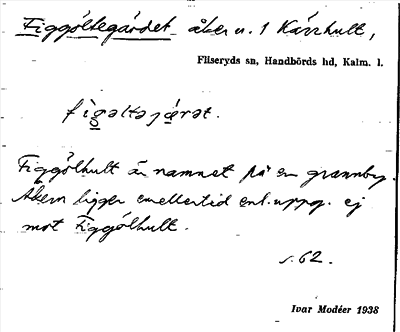 Figgöltegärdet åker u. 1 Kärrhult,
Fliseryds sn, Handbörds hd, Kalm. l.
fìgəltəjǽrət.
Figgölhult är namnet på en grannby.
Åkern ligger emellertid enl. uppg. ej
mot Figgölhult.
s. 62.
Ivar Modéer 1938